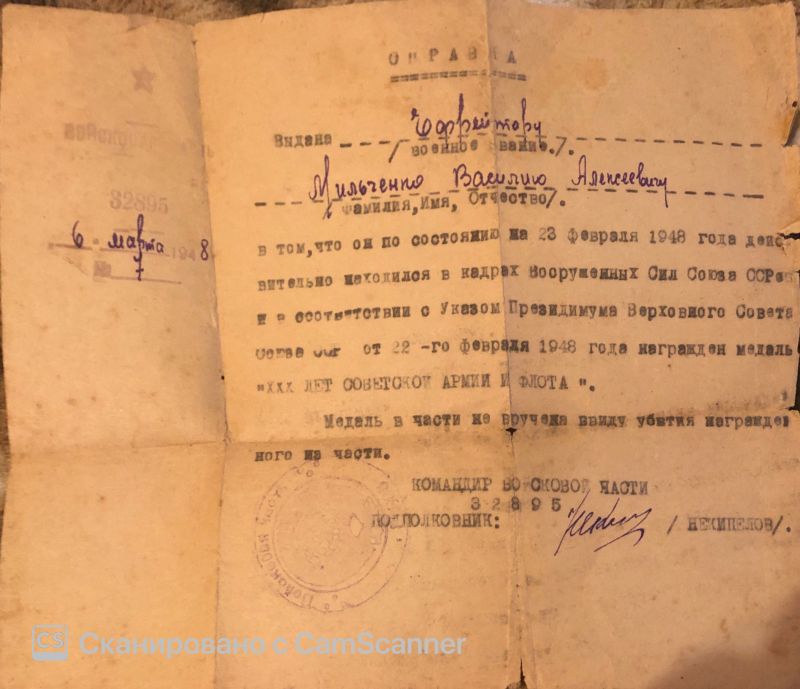 СПРАВКА
Выдана Ефрейтору
/военное звание./.
Мильченко Василию Алексеевичу
/Фамилия, Имя, Отчество/.
32895
6 марта 1948
№ 7
в том, что он по состоянию на 23 февраля 1948 года дейс
вительно находился в кадрах Вооруженных Сил Союза ССР
и в соответствии с Указом Президимума Верховного Совета
Союза ССР от 22-го февраля 1948 года награжден медаль
"ХХХ ЛЕТ СОВЕТСКОЙ АРМИИ И ФЛОТА ".
Медаль в части не вручена ввиду убытия награжден
ного из части.
КОМАНДИР ВОЙСКОВОЙ ЧАСТИ
32895
ПОДПОЛКОВНИК: / НЕКИПЕЛОВ/.
Войсковая часть
CS Сканировано с CamScanner